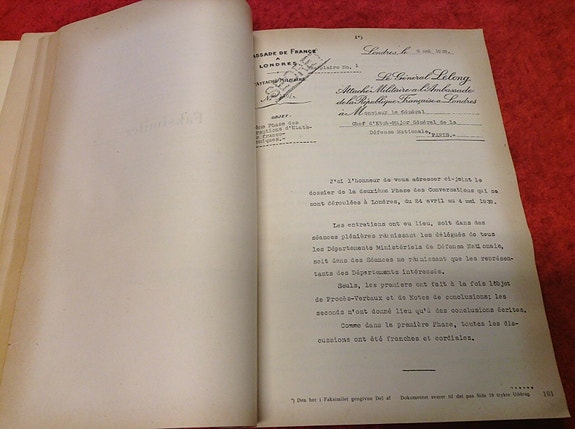 1*)
ASSADE DE FRANCE
A
LONDRES
ATTACHÉ MILITAIRE
No.
Londres, le 9 mai 1939.
Le Général Lelong,
Attaché Militaire à l'Ambassade
de la République Française à Londres
à Monsieur le Général
Chef d'Etat-Major Général de la
Défense Nationale,
PARIS.-
OBJET.
ème Phase des
d'Etats
franco-
niques.
J'ai l'honneur de vous adresser ci-joint le
dossier de la deuxième Phase des Conversations qui se
sont déroulées à Londres, du 24 avril au 4 mai 1939.
Les entretiens ont eu lieu, soit dans des
séances plénières réunissant les délégués de tous
les Départements Ministériels de Défense Nationale,
soit dans des Séances ne réunissant que les représen-
tants des Départements intéressés.
Seuls, les premiers ont fait à la fois l'objet
de Procès-Verbaux et de Notes de conclusions; les
seconds n'ont donné lieu qu'à des conclusions écrites.
Comme dans la première Phase, toutes les dis-
cussions ont été franches et cordiales.
*) Den her i Faksimile gengivne Del af Dokumentet svarer til det paa Side 78 trykte Uddrag.
191